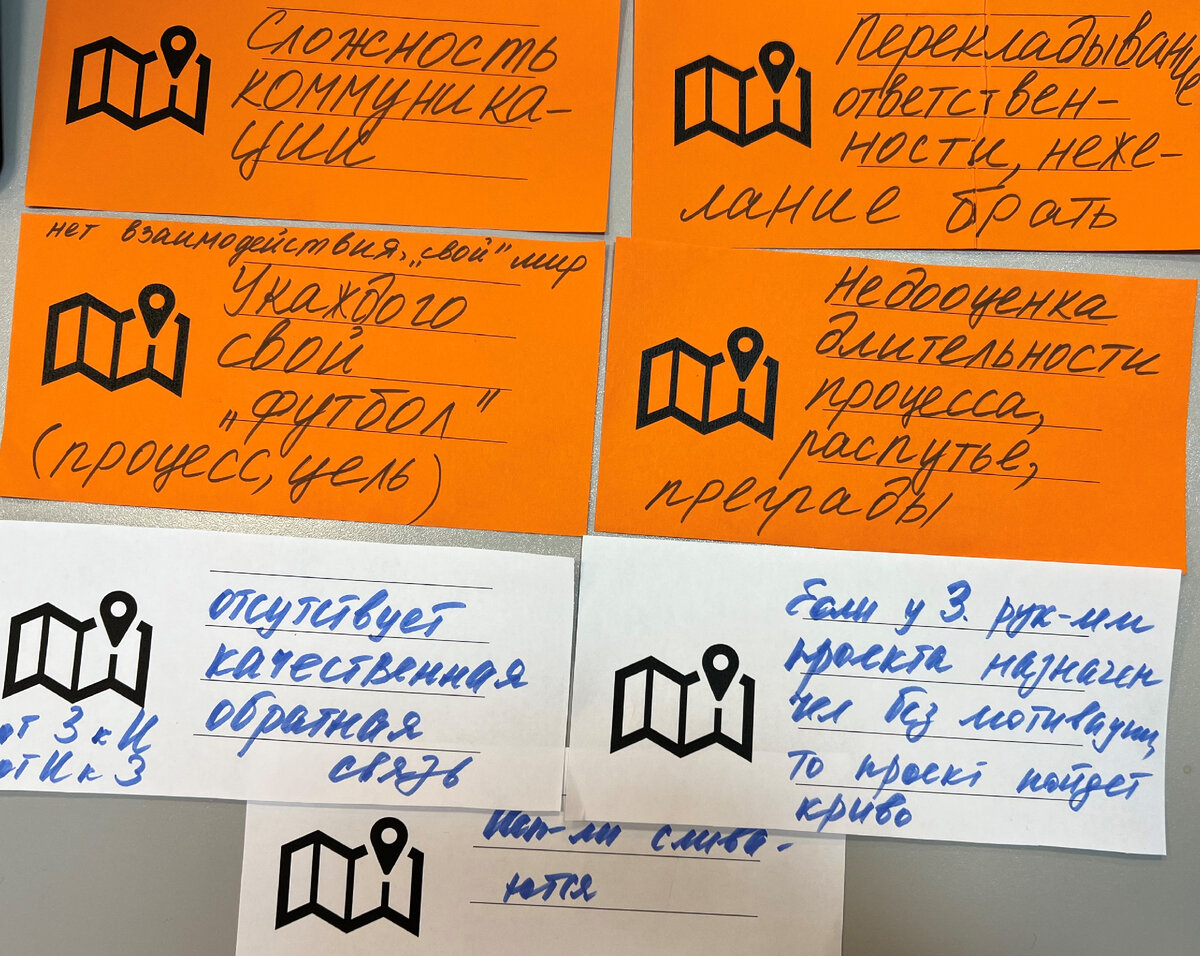 Сложность
коммуника-
ции
Перекладывание
ответствен-
ности, неже-
лание брать
нет взаимодействия, „свой" мир
У каждого
свой
„футбол"
(процесс, цель)
Недооценка
длительности
процесса,
распутье,
преграды
отсутствует
качественная
обратная
связь
от З к И
от И к З
Если у З. рук-лем
проекта назначен
чел без мотивации,
то проект пойдет
криво
Исп-ли слива-
ются